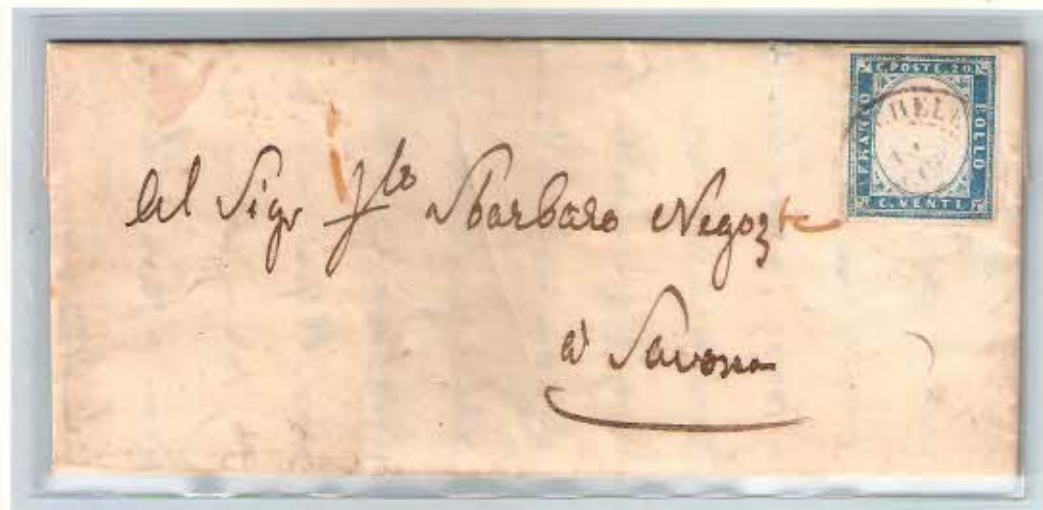 C. POSTE. 20
FRANCO
BOLLO
C. VENTI
Al Sigr Flo Sbarbaro Negozte
a Savona